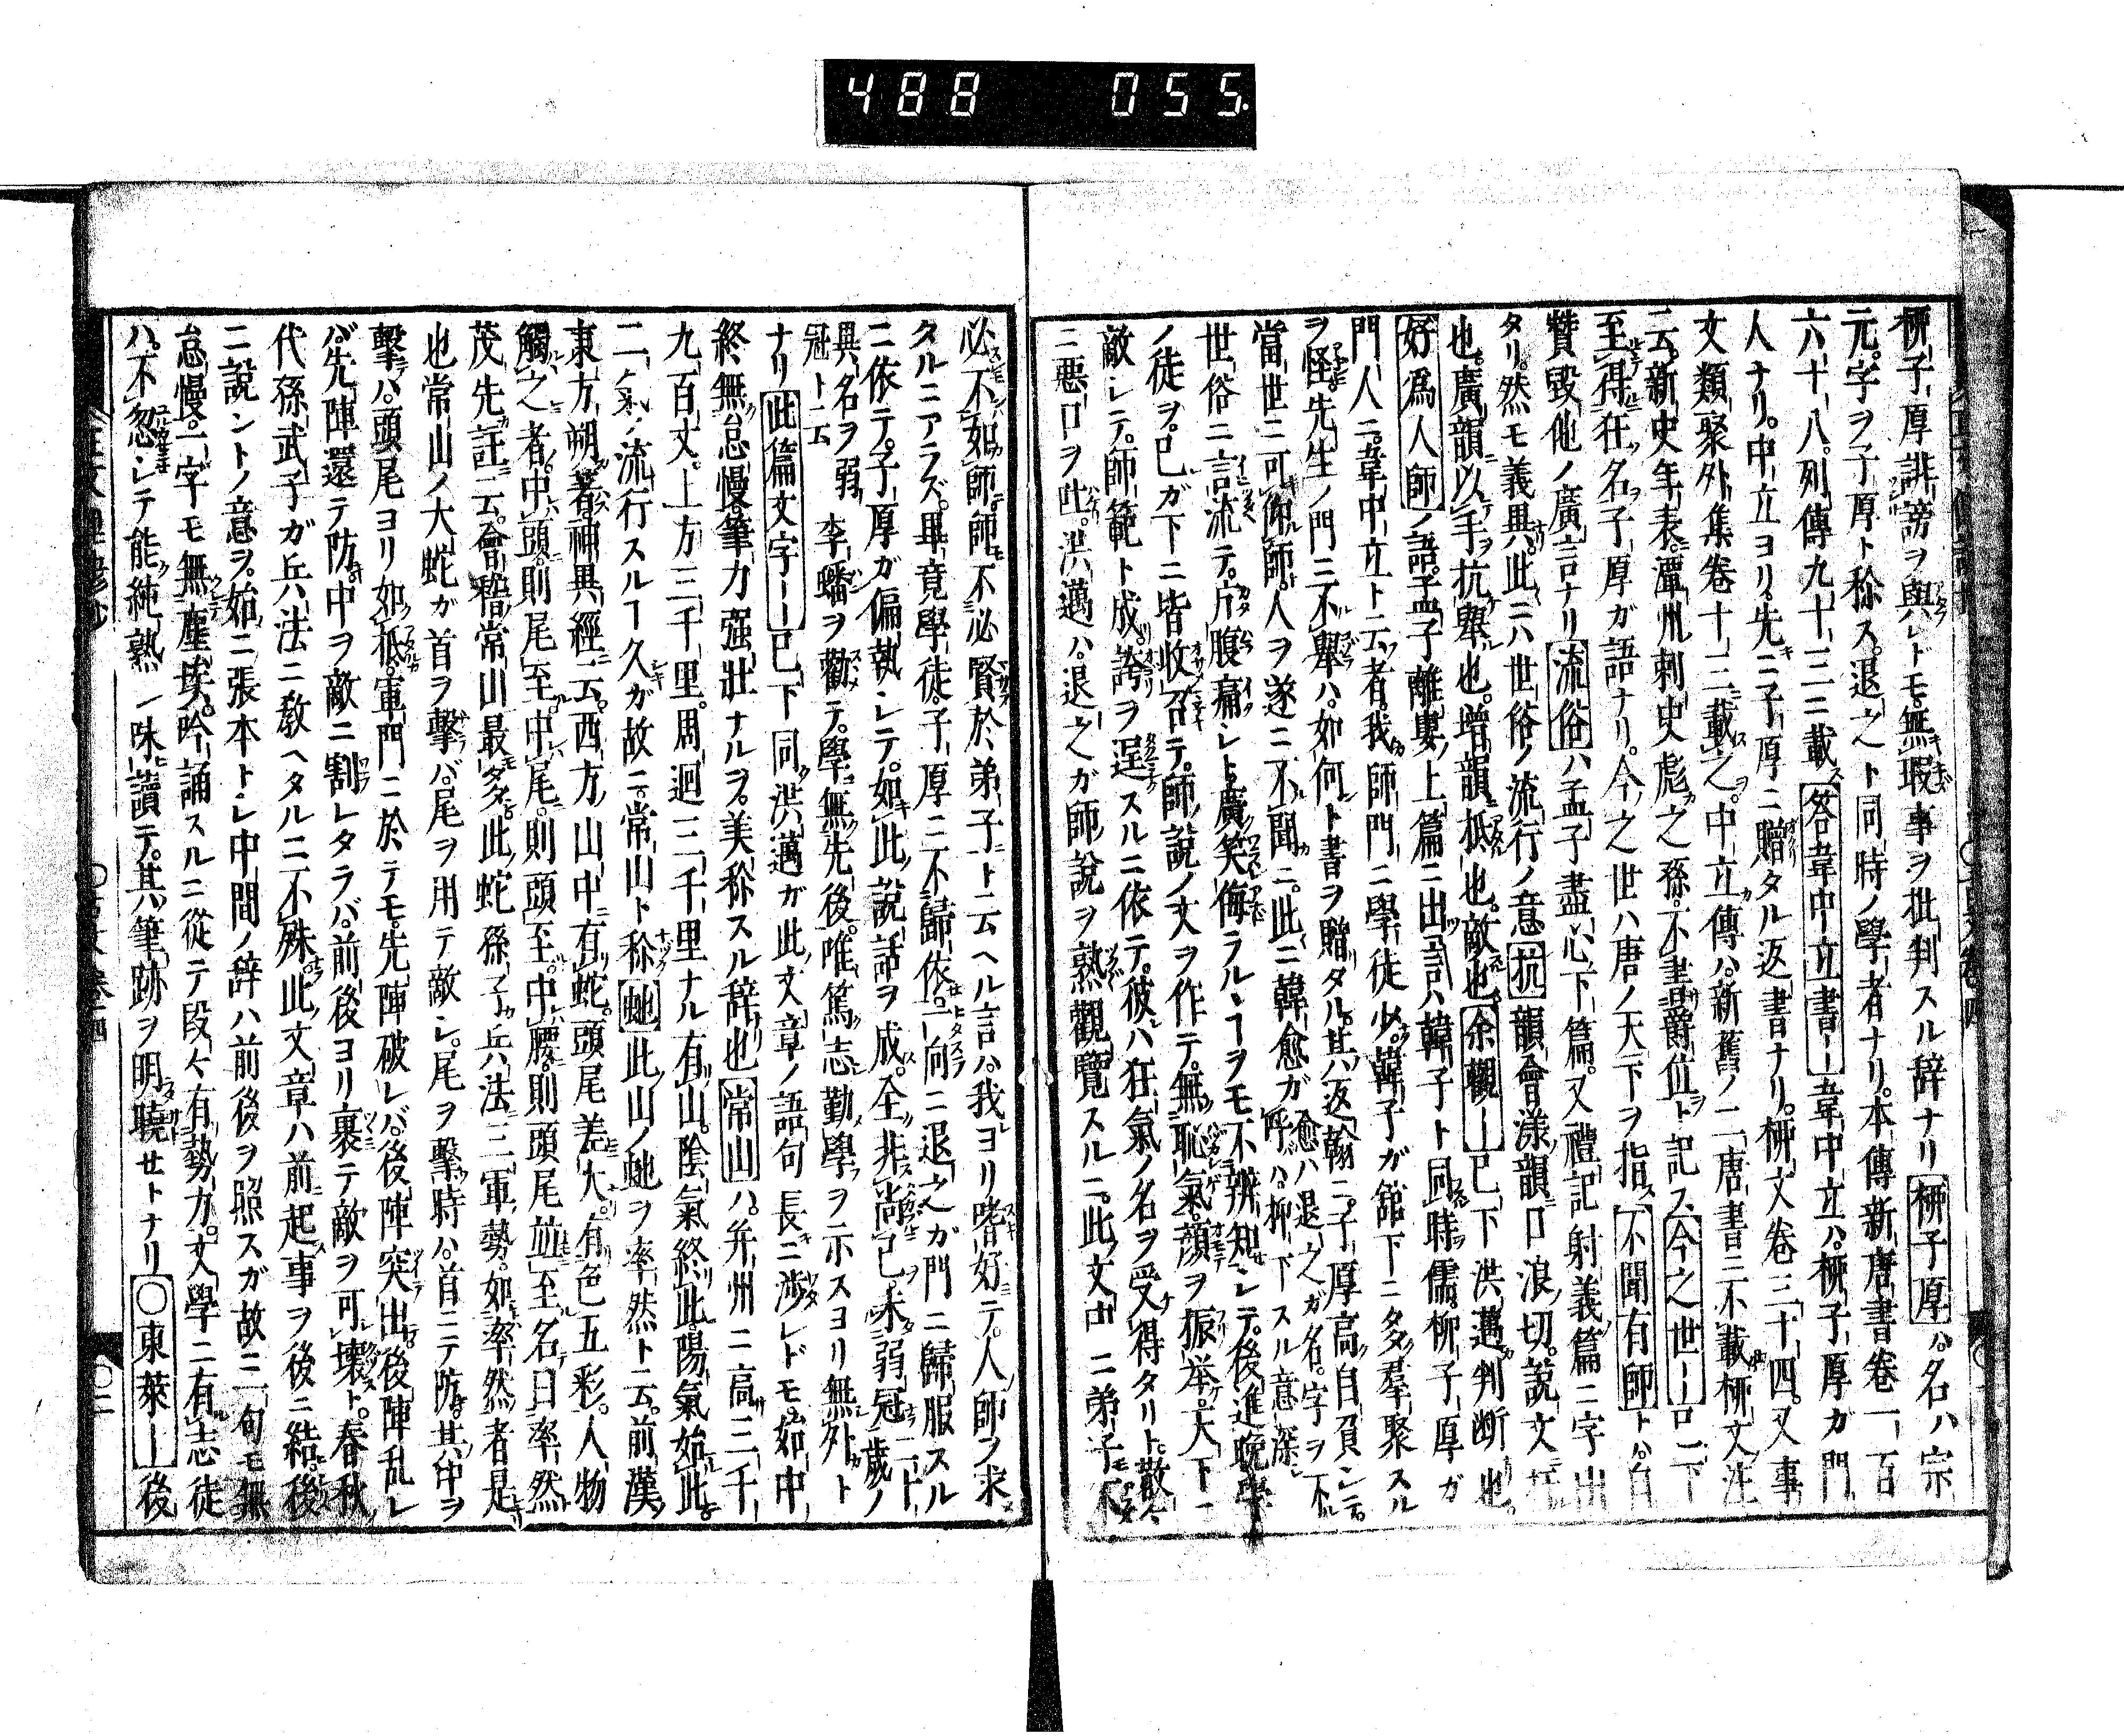 488 055
柳子厚誹謗ヲ與レドモ無瑕事ヲ批判スル辞ナリ柳子厚ハ名ハ宗
元字ヲ子厚ト称ス退之ト同時ノ學者ナリ本傳新唐書卷一百
六十八列傳九十三ニ載ス答韋中立書一韋中立ハ柳子厚ガ門
人ナリ中立ヨリ先ニ子厚ニ贈タル返書ナリ柳文卷三十四又事
文類聚外集卷十三ニ載之中立傳ハ新舊ノ二唐書ニ不載柳文注
云新史年表潭州刺史彪之孫不書爵位ト記ス今之世一一已下
至得狂名子厚ガ語ナリ今之世ハ唐ノ天下ヲ指ス不聞有師トハ自
賛毀他ノ廣言ナリ流俗ハ孟子盡心下篇又禮記射義篇ニ字出
タリ然モ義異此ニハ世俗ノ流行ノ意抗韻會漾韻口浪切說文
也廣韻以手抗舉也增韻抵也敵也余觀一已下洪邁判断也
好爲人師ノ語孟子離婁上篇ニ出言ハ韓子ト同時儒柳子厚ガ
門人ニ韋中立ト云者我師門ニ學徒少韓子ガ舘下ニ多群聚スル
ヲ怪先生ノ門ニ不舉ハ如何ト書ヲ贈タル其返翰ニ子厚高自負シテ
當世ニ可仰師人ヲ遂ニ不聞ニ此ニ韓愈ガ愈ハ退之ガ名字ヲ不呼ハ抑下スル意深シ
世俗ニ言流テ片腹痛シト廣笑侮ラルヽヿヲモ不辨知シテ後進晩學
ノ徒ヲ已ガ下ニ皆收召テ師說ノ文ヲ作テ無恥氣顔ヲ振举大下ニ
敵シテ師範ト成誇ヲ逞スルニ依テ彼ハ狂氣ノ名ヲ受得タリト散々
ニ悪口ヲ吐洪邁ハ退之ガ師說ヲ熟觀覽スルニ此文中ニ弟子不
必不如師師モ不必賢於弟子ト云ヘル言ハ我ヨリ嗜好テ人師ヲ求
タルニアラズ畢竟學徒子厚ニ不歸依一向ニ退之ガ門ニ歸服スル
ニ依テ子厚ガ偏執シテ如此說話ヲ成全非尚已未弱冠二十歲ノ
異名ヲ弱冠ト云李蟠ヲ勸テ學無先後唯篤志勤學ヲ示スヨリ無外ト
ナリ此篇文字一一已下同洪邁ガ此文章ノ語句長ニ渉レドモ始中
終無怠慢筆力强壯ナルヲ美称スル辞也常山ハ并州ニ高三千
九百丈上方三千里周迴三千里ナル有山陰氣終此陽氣始此
二氣ノ流行スルヿ久ガ故ニ常山ト称蛇此山ノ蛇ヲ率然ト云前漢
東方朔著神異經云西方山中有蛇頭尾差大有色五彩人物
觸之者中頭則尾至中尾則頭至中腰則頭尾並至名曰率然
茂先註云會稽常山最多此蛇孫子兵法三軍勢如率然者是
也常山ノ大蛇ガ首ヲ擊バ尾ヲ用テ敵シ尾ヲ擊時ハ首ニテ防其中ヲ
擊ハ頭尾ヨリ如抵軍門ニ於テモ先陣破レバ後陣突出後陣乱レ
バ先陣還テ防中ヲ敵ニ割レタラバ前後ヨリ裹テ敵ヲ可壞ト春秋
代孫武子ガ兵法ニ敎ヘタルニ不殊此文章ハ前起事ヲ後ニ結後
ニ說ントノ意ヲ始ニ張本トシ中間ノ辞ハ前後ヲ照スガ故ニ一句モ無
怠慢一字モ無塵埃吟誦スルニ從テ段々有勢力文學ニ有志徒
ハ不忽シテ能純熟一味讀テ其筆跡ヲ明曉セトナリ○東萊一後